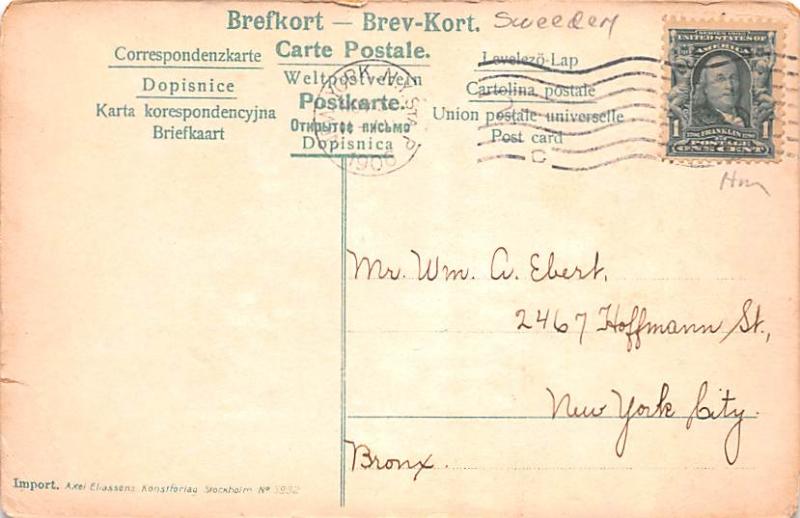 Brefkort — Brev-Kort. Sweeden
Correspondenzkarte
Carte Postale.
Levelezö-Lap
Dopisnice
Weltpostverein
Cartolina postale
Karta korespondencyjna
Postkarte.
Union postale universelle
Briefkaart
Открытое письмо
Post card
Dopisnica
YORK, N.Y. STA.
1906
C
SERIES 1902
UNITED STATES OF
AMERICA
1 FRANKLIN 1
POSTAGE
ONE CENT
Mr. Wm. A. Ebert,
2467 Hoffmann St.,
New York City.
Bronx.
Import. Axel Eliassons Konstförlag Stockholm No 3932